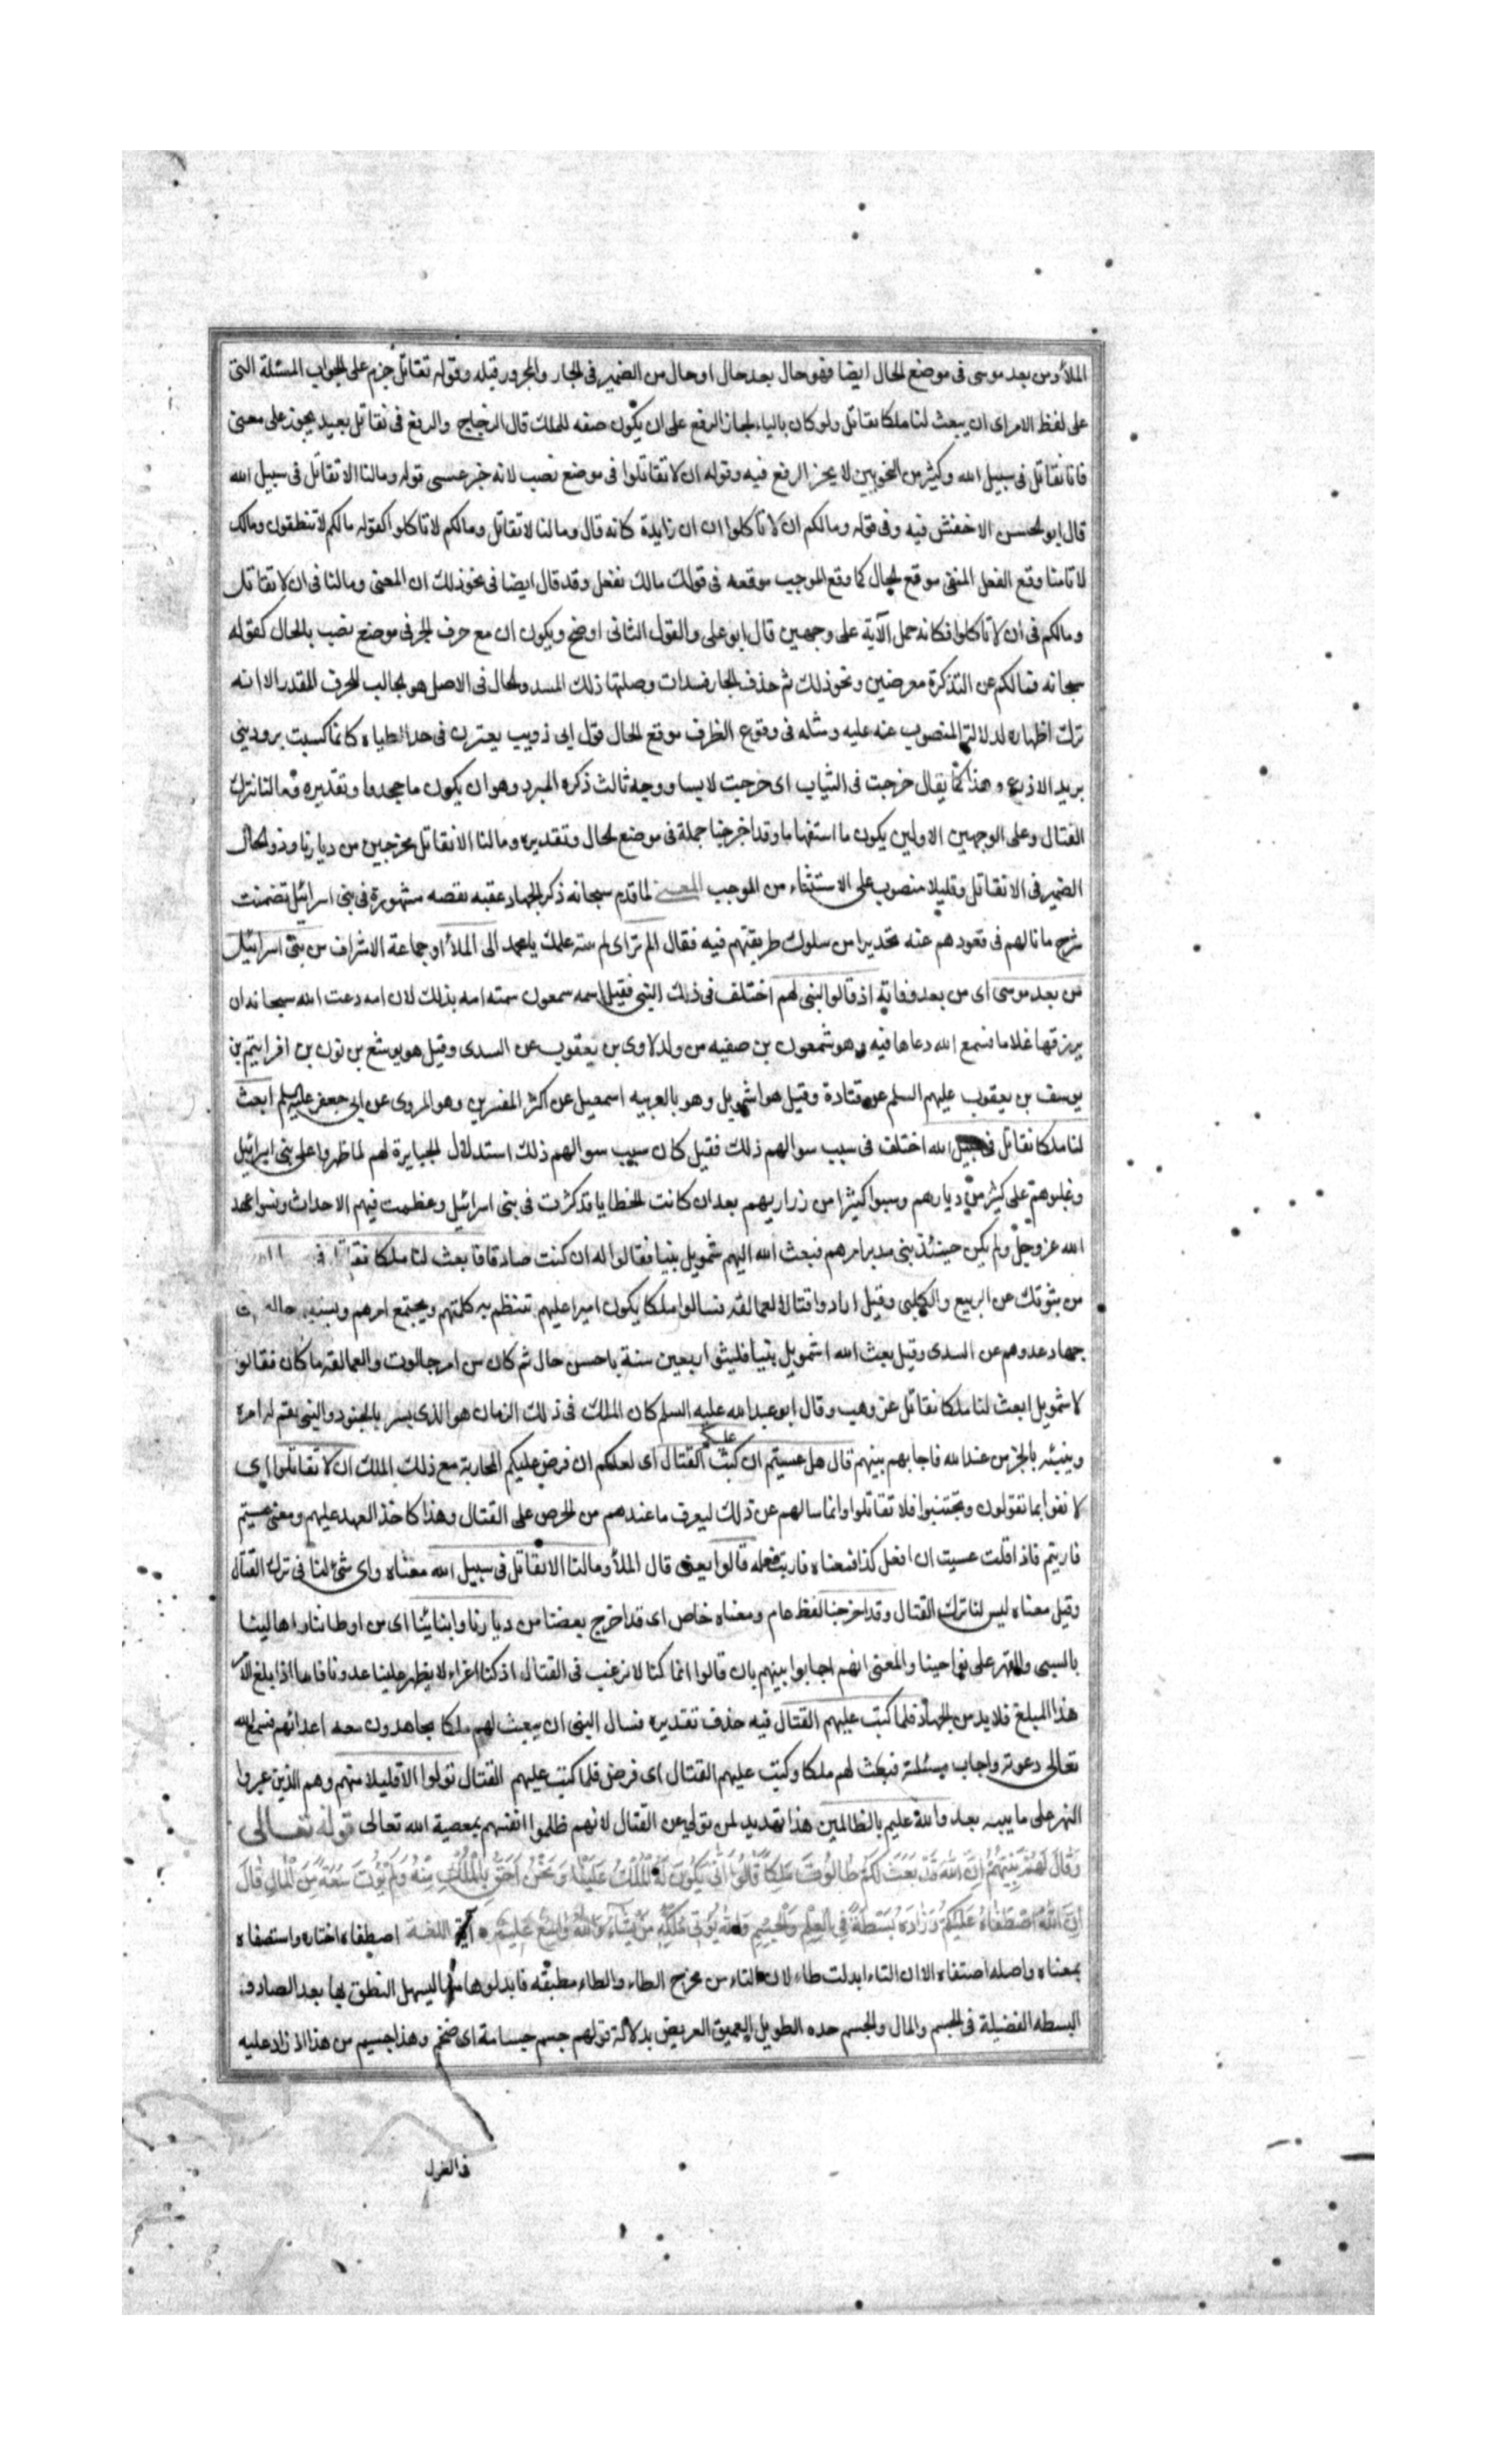 الملأ ومن بعد موسى فى موضع الحال ايضا فهو حال بعد حال او حال من الضمير فى الجار والمجرور قبله وقوله نقاتل جزم على الجواب المسئلة التى
على لفظ الامر اى ان يبعث لنا ملكا نقاتل ولو كان بالياء لجاز الرفع على ان يكون صفه للملك قال الزجاج والرفع فى نقاتل بعيد يجوز على معنى
فانا نقاتل فى سبيل الله وكثير من النحويين لا يجز الرفع فيه وقوله ان لا تقاتلوا فى موضع نصب لانه خبر عسى قوله ومالنا الا نقاتل فى سبيل الله
قال ابو الحسن الاخفش فيه وفى قوله ومالكم ان لا تاكلوا ان ان زايدة كانه قال ومالنا لا نقاتل ومالكم لا تاكلوا كقوله مالكم لا تنطقون ومالك
لا تامنا وقع الفعل المنفى موقع الحال كما وقع الموجب موقعه فى قولك مالك تفعل وقد قال ايضا فى نحو ذلك ان المعنى ومالنا فى ان لا نقاتل
ومالكم فى ان لا تاكلوا فكانه حمل الآية على وجهين قال ابو على والقول الثانى اوضح ويكون ان مع حرف الجر فى موضع نصب بالحال كقوله
سبحانه فمالكم عن التذكرة معرضين ونحو ذلك ثم حذف الجار فسدت وصلتها ذلك المسد والحال فى الاصل هو الجالب للحرف المقدر الا انه
ترك اظهاره لدلالة المنصوب عنه عليه ومثله فى وقوع الظرف موقع الحال قول ابى ذويب يعثرن فى حد الظباه كانما كسيت برود بنى
يزيد الاذرع وهذا كما يقال خرجت فى الثياب اى خرجت لابسا ووجه ثالث ذكره المبرد وهو ان يكون ما جحدا وتقديره ومالنا نترك
القتال وعلى الوجهين الاولين يكون ما استفهاما وقد اخرجنا جملة فى موضع الحال وتقديره ومالنا الا نقاتل مخرجين من ديارنا وذو الحال
الضمير فى الا نقاتل وقليلا منصوب على الاستثناء من الموجب المعنى لما قدم سبحانه ذكر الجهاد عقبه بقصه مشهورة فى بنى اسرائيل تضمنت
شرح ما نالهم فى قعودهم عنه تحذيرا من سلوك طريقتهم فيه فقال الم تر اى لم ينته علمك يا محمد الى الملأ او جماعة الاشراف من بنى اسرائيل
من بعد موسى اى من بعد وفاته اذ قالوا لنبى لهم اختلف فى ذلك النبى فقيل اسمه سمعون سمته امه بذلك لان امه دعت الله سبحانه ان
يرزقها غلاما فسمع الله دعاها فيه وهو شمعون بن صفيه من ولد لاوى بن يعقوب عن السدى وقيل هو يوشع بن نون بن افراييم بن
يوسف بن يعقوب عليهم السلم عن قتادة وقيل هو اشمويل وهو بالعربيه اسمعيل عن اكثر المفسرين وهو المروى عن ابى جعفر عليه السلم ابعث
لنا ملكا نقاتل فى سبيل الله اختلف فى سبب سوالهم ذلك فقيل كان سبب سوالهم ذلك استذلال الجبابرة لهم لما ظهروا على بنى اسرائيل
وغلبوهم على كثير من ديارهم وسبوا كثيرا من زراريهم بعد ان كانت الخطايا قد كثرت فى بنى اسرائيل وعظمت فيهم الاحداث ونسوا عهد
الله عز وجل ولم يكن حينئذ نبى مدبر امرهم فبعث الله اليهم شمويل نبيا فقالوا له ان كنت صادقا فابعث لنا ملكا نقاتل فى
من بنوتك عن الربيع والكلبى وقيل ارادوا قتال العمالقه فسالوا ملكا يكون اميرا عليهم تنتظم به كلمتهم ويجتمع امرهم ويستقيم حالهم فى
جهاد عدوهم عن السدى وقيل بعث الله اشمويل نبيا فلبثوا اربعين سنة باحسن حال ثم كان من امر جالوت والعمالقه ما كان فقالوا
لاشمويل ابعث لنا ملكا نقاتل عن وهب وقال ابو عبد الله عليه السلم كان الملك فى ذلك الزمان هو الذى يسير بالجنود والنبى يقيم له امره
وينبئه بالخبر من عند الله فاجابهم نبيهم قال هل عسيتم ان كتب عليكم القتال اى لعلكم ان فرض عليكم المحاربة مع ذلك الملك ان لا تقاتلوا اى
لا تفوا بما تقولون وتجتنبوا فلا تقاتلوا وانما سالهم عن ذلك ليعرف ما عندهم من الحرص على القتال وهذا كاخذ العهد عليهم ومعنى عسيتم
قاربتم فاذا قلت عسيت ان افعل كذا فمعناه قاربت فعله قالوا يعنى قال الملأ ومالنا الا نقاتل فى سبيل الله معناه واى شئ لنا فى ترك القتال
وقيل معناه ليس لنا ترك القتال وقد اخرجنا لفظ عام ومعناه خاص اى قد اخرج بعضنا من ديارنا وابنائنا اى من اوطاننا واهالينا
بالسبى والقهر على نواحينا والمعنى انهم اجابوا نبيهم بان قالوا انما كنا لا نرغب فى القتال اذ كنا اعزاء لا يظهر علينا عدونا فاما اذا بلغ الامر
هذا المبلغ فلا بد من الجهاد فلما كتب عليهم القتال فيه حذف تقديره فسال النبى ان يبعث لهم ملكا يجاهدون معه اعدائهم فسمع الله
تعالى دعوته واجاب مسئلته فبعث لهم ملكا وكتب عليهم القتال اى فرض فلما كتب عليهم القتال تولوا الا قليلا منهم وهم الذين عبروا
النهر على ما يبينه بعد والله عليم بالظالمين هذا تهديد لمن تولى عن القتال لانهم ظلموا انفسهم بمعصية الله تعالى قوله تعالى
وَقَالَ لَهُمْ نَبِيُّهُمْ اِنَّ اللهَ قَدْ بَعَثَ لَكُمْ طَالُوتَ مَلِكًا قَالُوا اَنّٰى يَكُونُ لَهُ الْمُلْكُ عَلَيْنَا وَنَحْنُ اَحَقُّ بِالْمُلْكِ مِنْهُ وَلَمْ يُؤْتَ سَعَةً مِنَ الْمَالِ قَالَ
اِنَّ اللهَ اصْطَفَاهُ عَلَيْكُمْ وَزَادَهُ بَسْطَةً فِي الْعِلْمِ وَالْجِسْمِ وَاللهُ يُؤْتِي مُلْكَهُ مَنْ يَشَاءُ وَاللهُ وَاسِعٌ عَلِيمٌ آية اللغـة اصطفاه اختاره واستصفاه
بمعناه واصله اصتفاه الا ان التاء ابدلت طاء لان التاء من مخرج الطاء والطاء مطبقه فابدلوها منها ليسهل النطق بها بعد الصاد و
البسطه الفضيلة فى الجسم والمال والجسم حده الطويل العميق العريض بدلالة قولهم جسم جسامة اى ضخم وهذا جسيم من هذا اذا زاد عليه
فى الطول